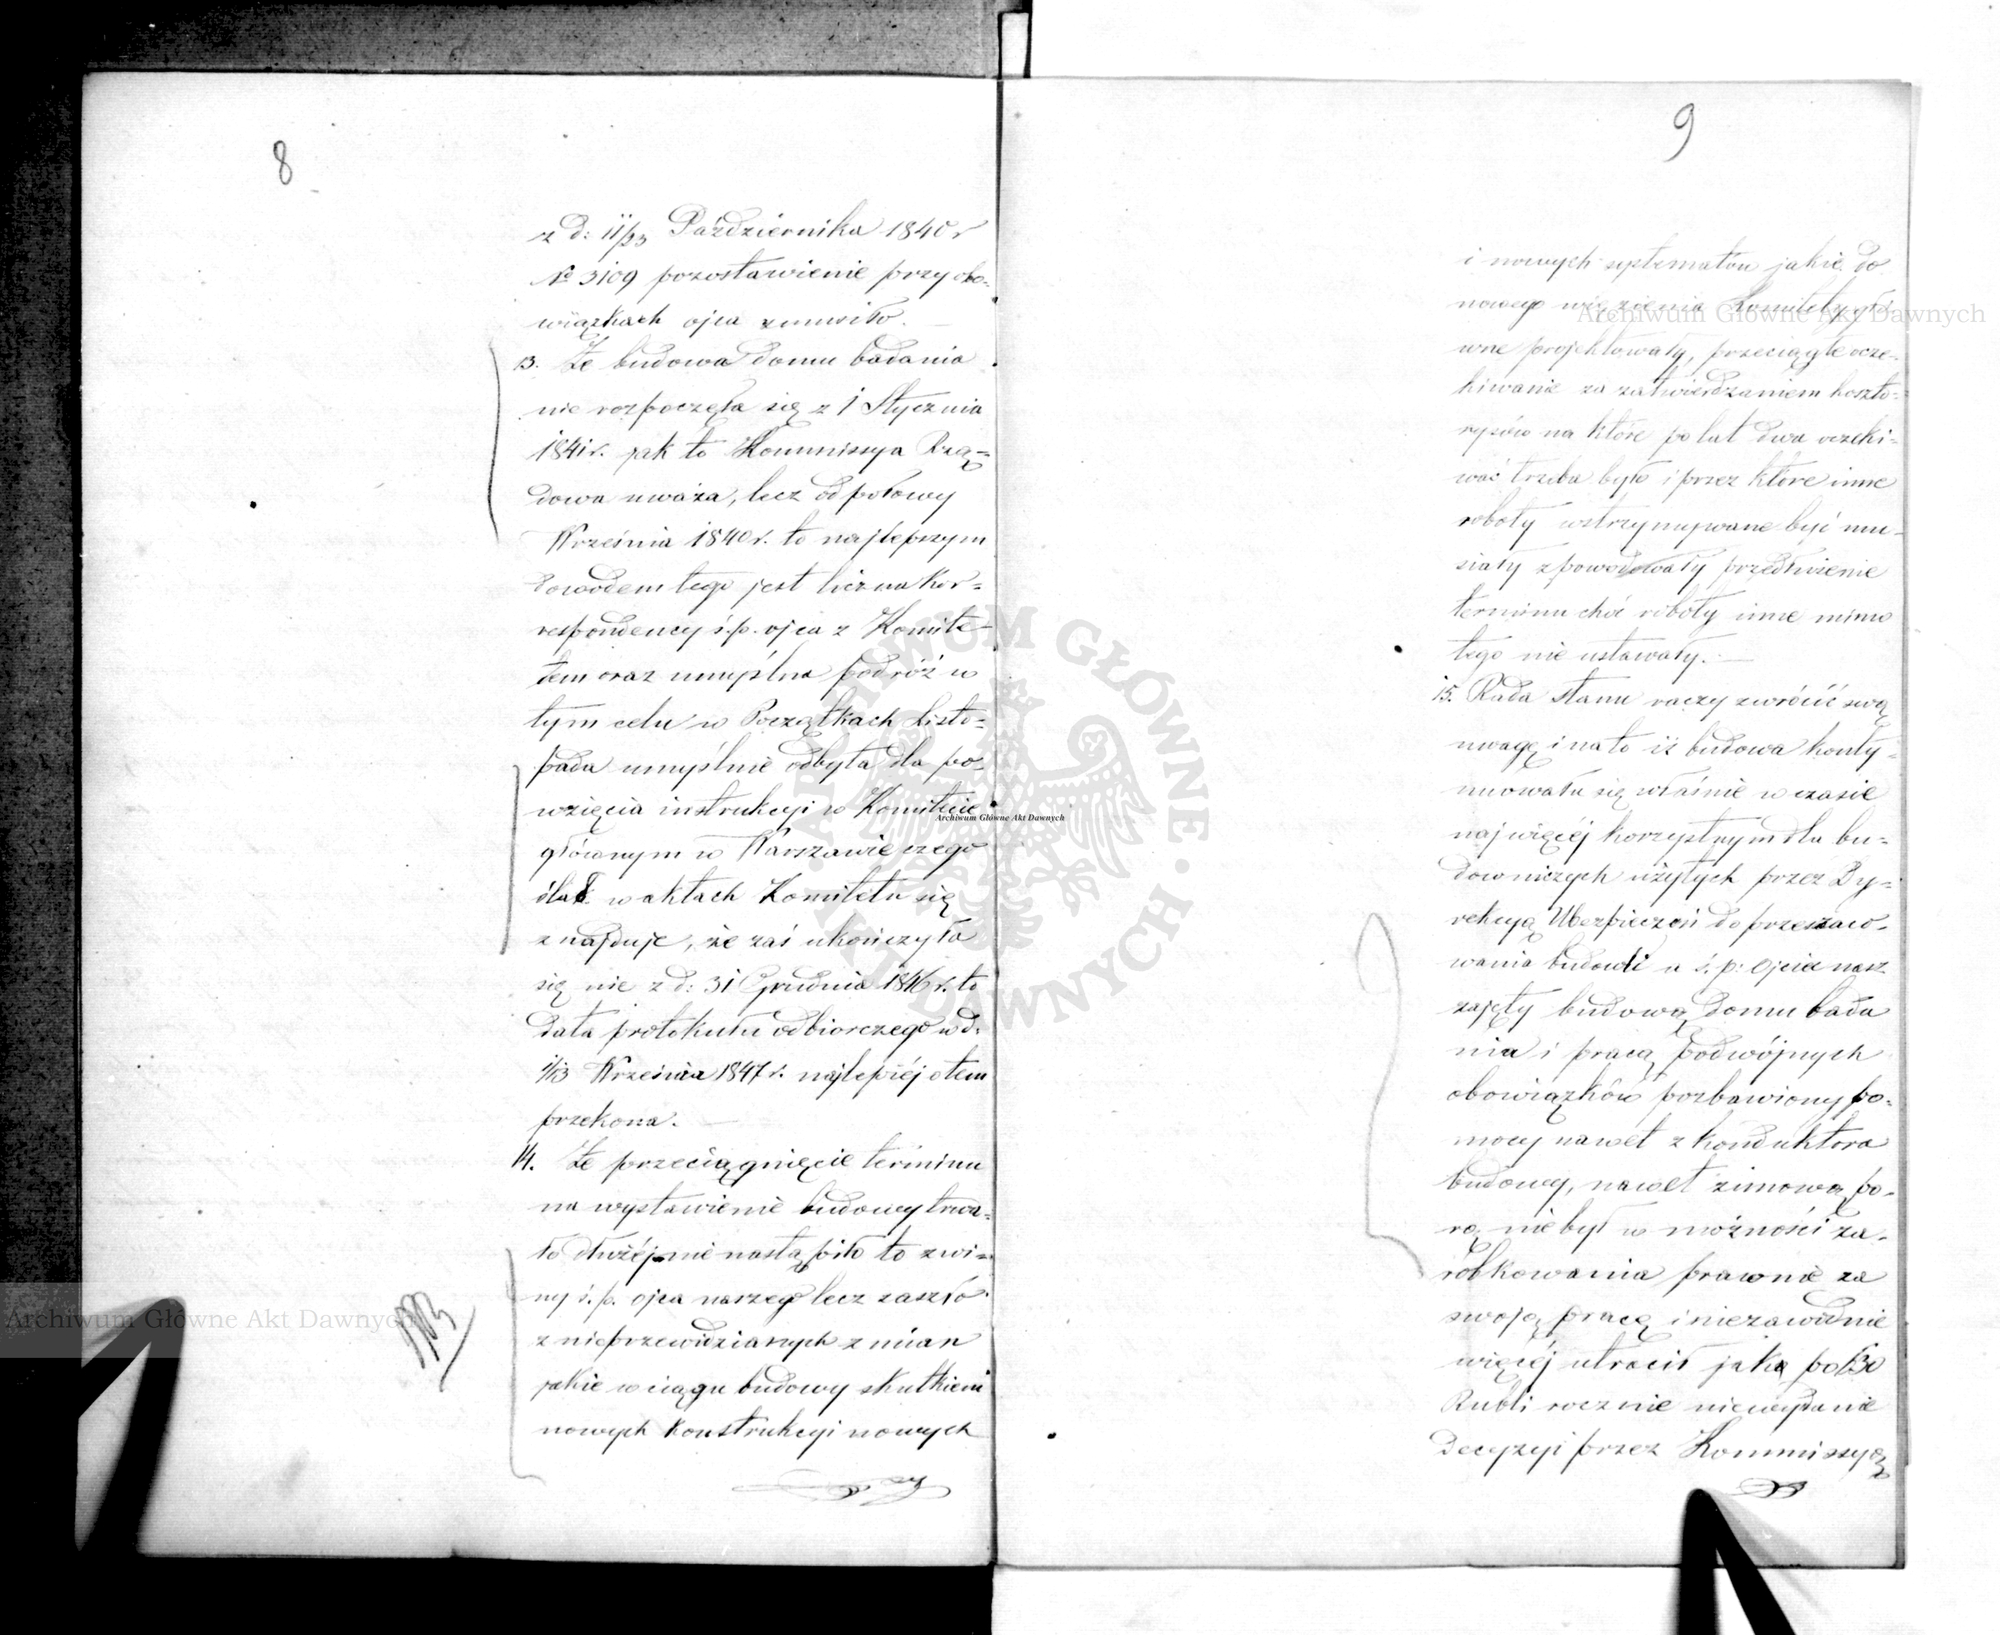 8
z d: 11/23 Października 1840 r
№ 3109 pozostawienie przy obo-
wiązkach ojca zmusiło.
13. Że budowa domu badania
nie rozpoczęła się z 1 Stycznia
1841 r. jak to Kommissya Rzą=
dowa uważa, lecz od połowy
Września 1840 r. to najlepszym
dowodem tego jest liczna kor=
respondencya ś.p. ojca z Komite-
tem oraz umyślna podróż w
tym celu w Początkach Listo=
pada umyślnie odbyta dla po-
wzięcia instrukcyi w Komitecie
głównym w Warszawie czego
ślad w aktach Komitetu się
znajduje, że zaś ukończyła
się nie z d: 31 Grudnia 1846 r. to
data protokułu odbiorczego w d:
1/13 Września 1847 r. najlepiéj o tem
przekona.
14. Że przeciągnięcie terminu
na wystawienie budowy trwa=
ło dłużéj nie nastąpiło to z wi=
ny ś.p. ojca naszego lecz zaszło
z nieprzewidzianych zmian
jakie w ciągu budowy skutkiem
nowych konstrukcyi nowych
9
i nowych systematów jakie do
nowego więzienia Komitety głó-
wne projektowały, przeciągłe ocze-
kiwanie za zatwierdzaniem koszto=
rysów na które po lat dwa oczeki=
wać trzeba było i przez które inne
roboty wstrzymywane być mu-
siały spowodowały przedłużenie
terminu choć roboty inne mimo
tego nie ustawały.
15. Rada Stanu raczy zwrócić swą
uwagę i na to iż budowa konty-
nuowała się właśnie w czasie
najwięcéj korzystnym dla bu=
downiczych użytych przez Dy=
rekcyą Ubezpieczeń do przeszaco-
wania budowli a ś.p: Ojciec nasz
zajęty budową domu bada
nia i pracą podwójnych
obowiązków pozbawiony po-
mocy nawet z konduktora
budowy, nawet zimową po-
rą nie był w możności za-
robkowania prawnie za
swoją pracę i niezawodnie
więcéj utracił jak po 150
Rubli rocznie niewydanie
Decyzyi przez Kommissyą
Archiwum Główne Akt Dawnych
Archiwum Główne Akt Dawnych
Archiwum Główne Akt Dawnych
ARCHIWUM GŁÓWNE AKT DAWNYCH